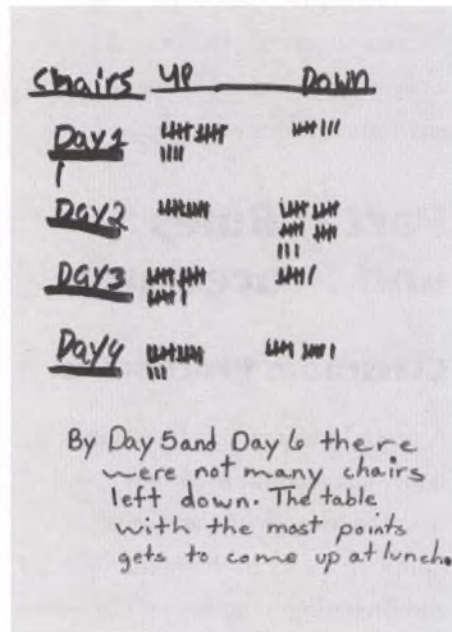 Chairs UP Down
Day1
Day2
Day3
Day4
By Day 5 and Day 6 there
were not many chairs
left down. The table
with the most points
gets to come up at lunch.